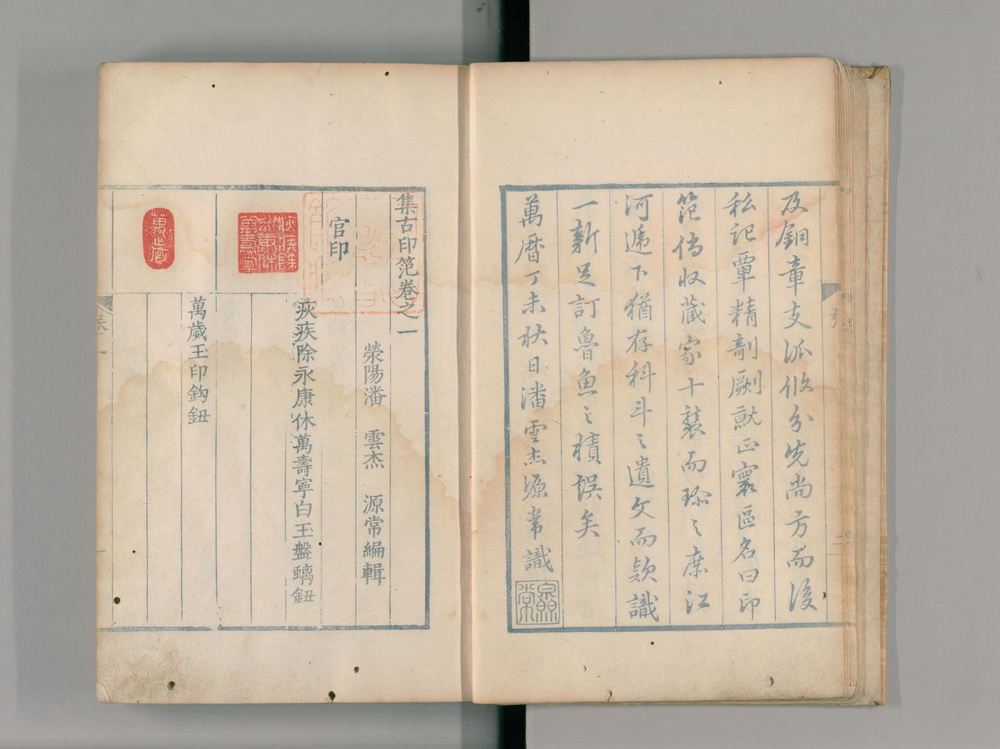 及銅章支派攸分先尚方而後
私記覃精剞劂就正寰區名曰印
笵傳收藏家十襲而珍之庶江
河遞下猶存科斗之遺文而款識
一新足訂魯魚之積誤矣
萬曆丁未秋日潘雲杰源常識
集古印笵卷之一
滎陽潘　雲杰　源常編輯
官印
疢疾除永康休萬壽寧白玉盤螭鈕
萬歲
萬歲玉印鈎鈕